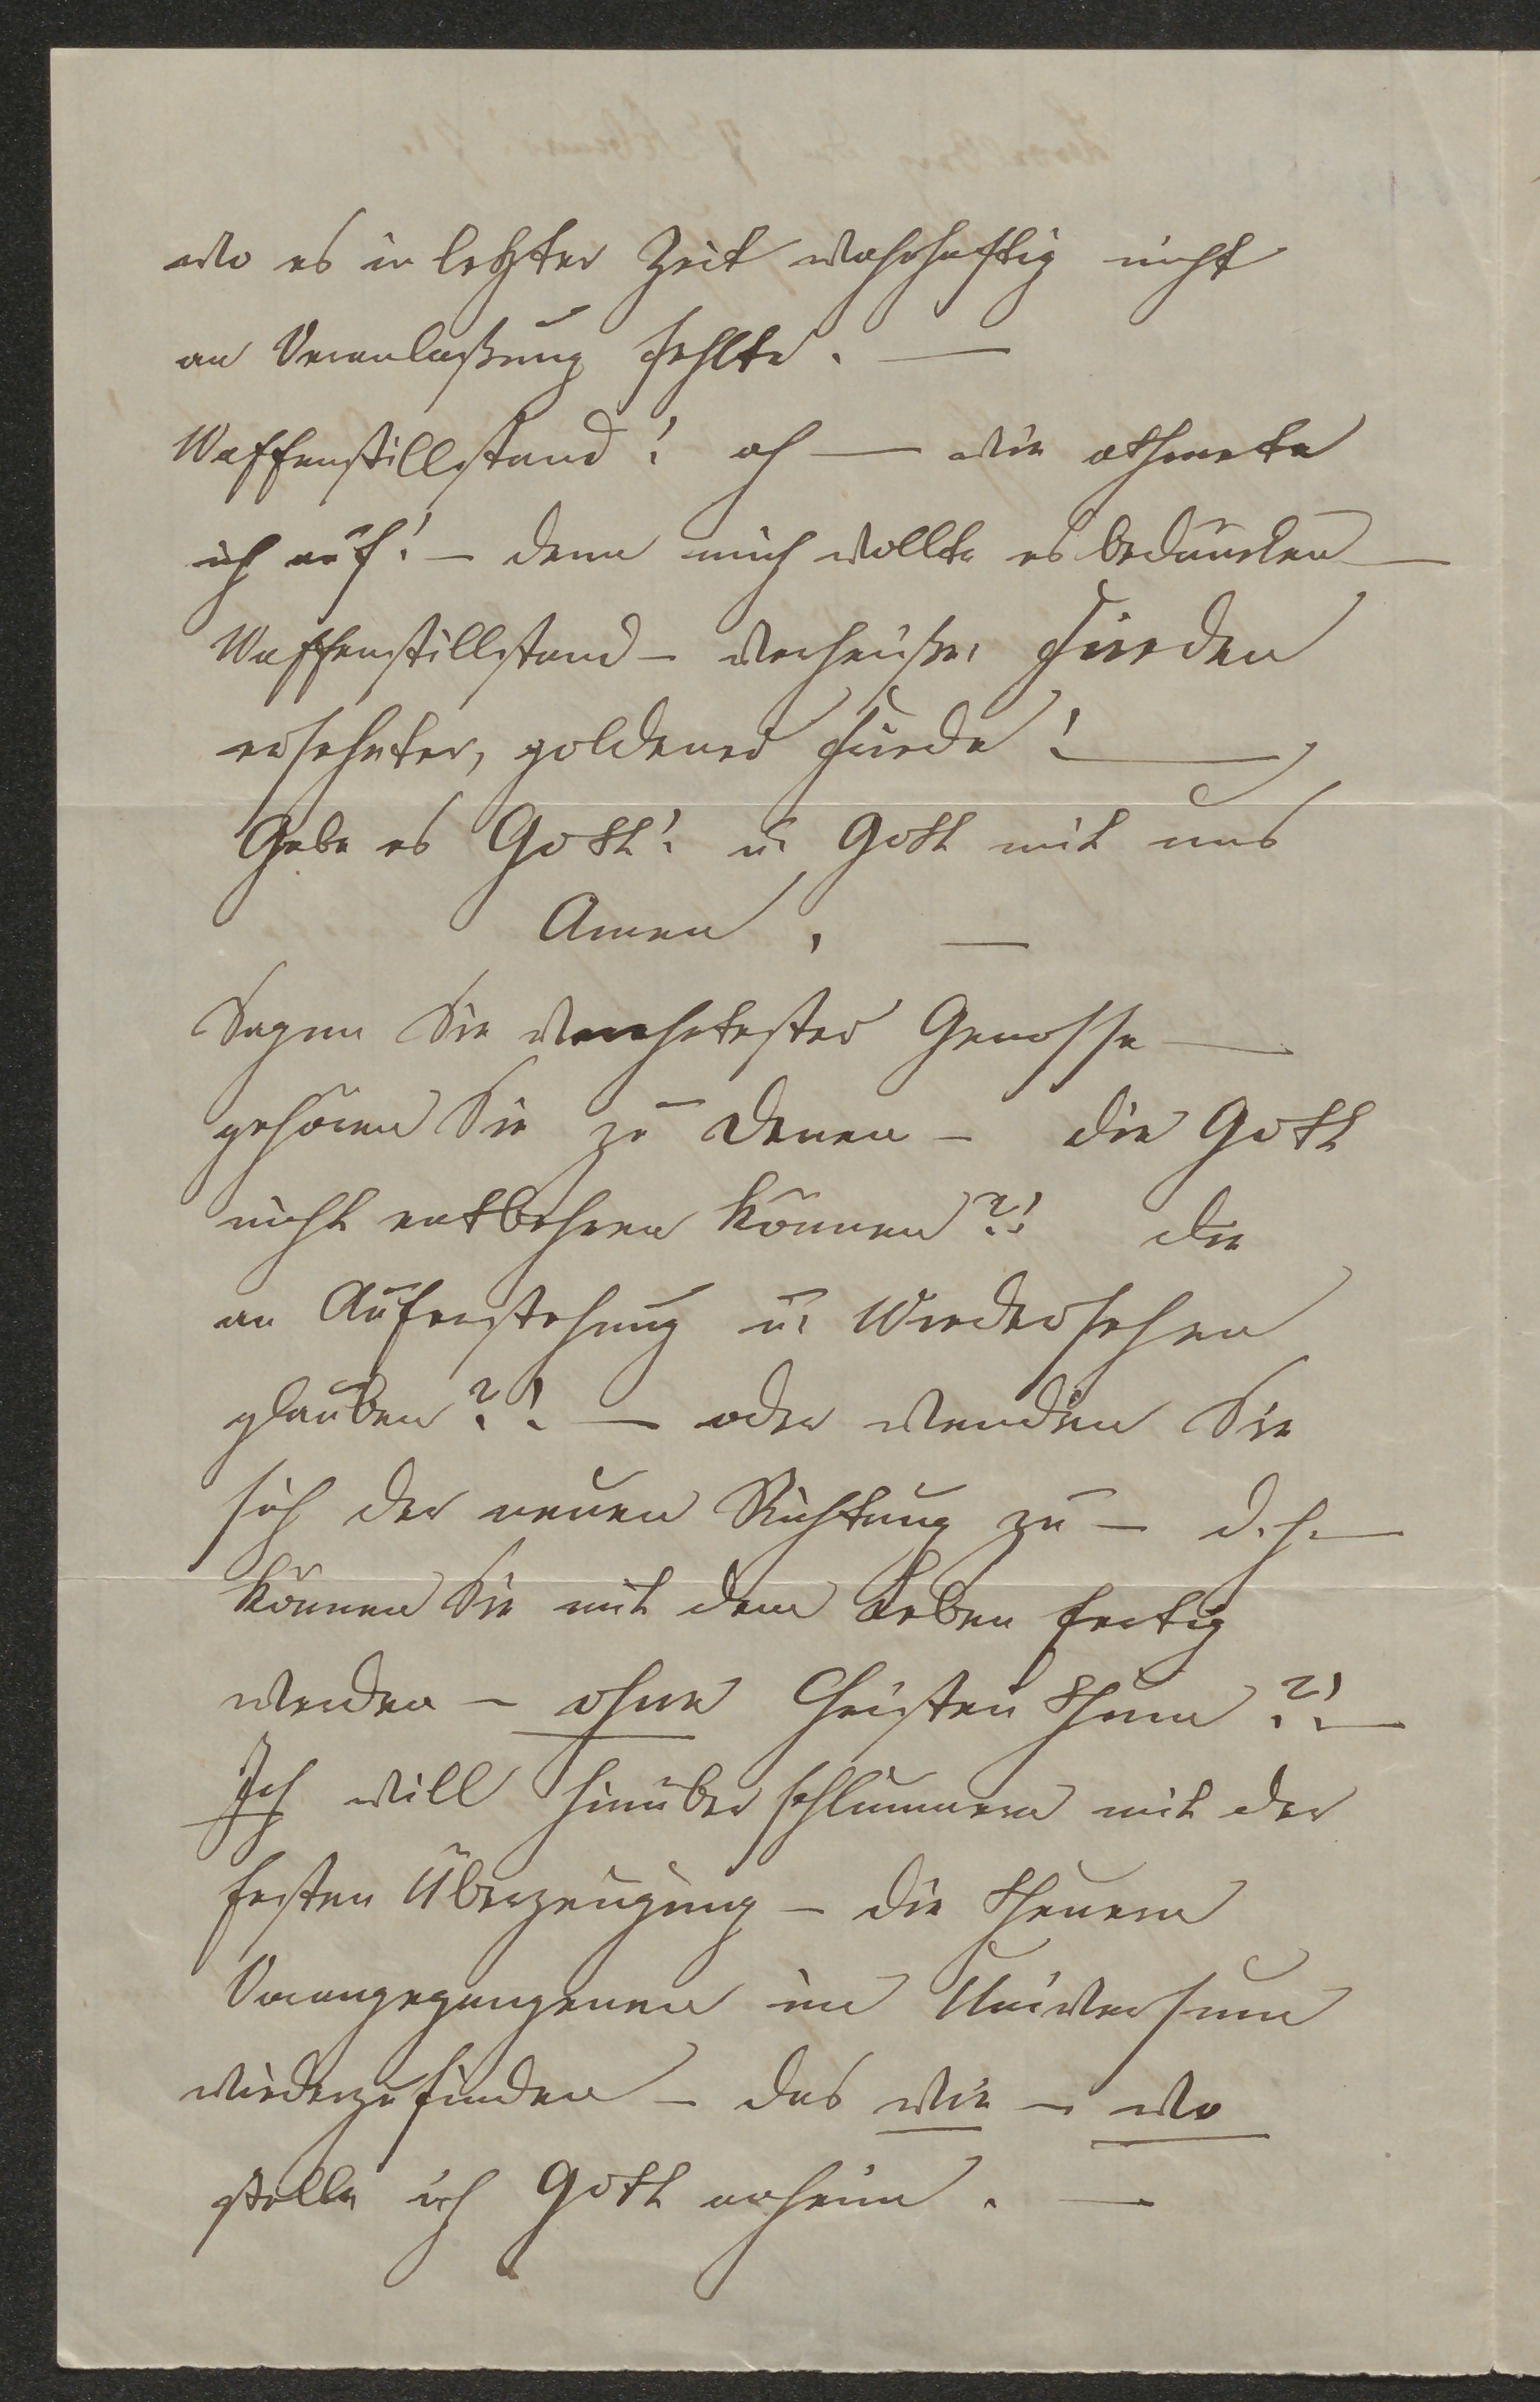 wo es in letzter Zeit wahrhaftig nicht
an Veranlaßung fehlte. —
Waffenstillstand! ach — wie athmete
ich auf! — denn mich wollte es bedünken —
Waffenstillstand — verheißt Frieden
ersehnter, goldener Friede! —
Gebe es Gott! u. Gott mit uns
Amen. —
Sagen Sie verehrtester Genosse —
gehören Sie zu denen — die Gott
nicht entbehren können?! die
an Auferstehung u. Wiedersehen
glauben?! — oder wenden Sie
sich der neuen Richtung zu — d. h. —
können Sie mit dem Leben fertig
werden — ohne Christenthum?! —
Ich will hinüber schlummern mit der
festen Überzeugung — die theuern
Vorangegangenen im Universum
wiederzufinden — das wie — wo
stelle ich Gott anheim. —